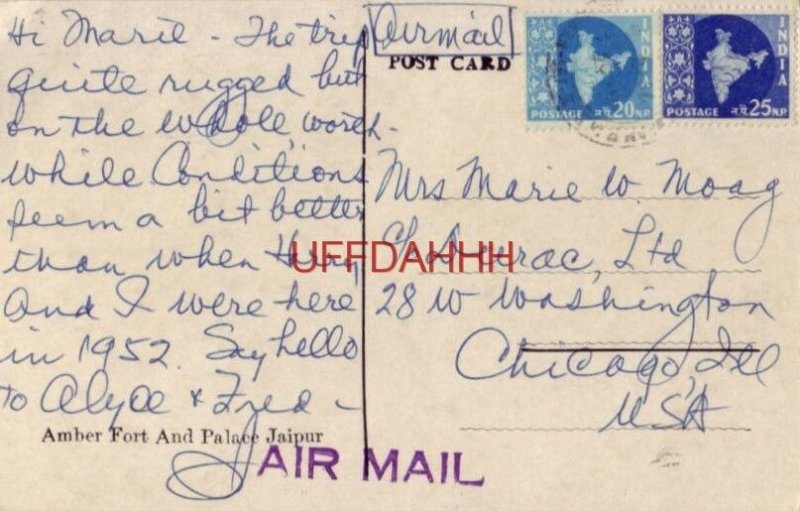 Hi Marie - The trip
quite rugged but
on the whole worth-
while Conditions
seem a bit better
than when Harry
and I were here
in 1952. Say hello
to Alyce & Fred -
Amber Fort And Palace Jaipur
Airmail
POST CARD
INDIA
POSTAGE न.पै. 20 N.P.
INDIA
POSTAGE न.पै. 25 N.P.
Mrs Marie W. Moag
C/o Ltd
28 W Washington
Chicago, Ill
USA
AIR MAIL
UFFDAHHH